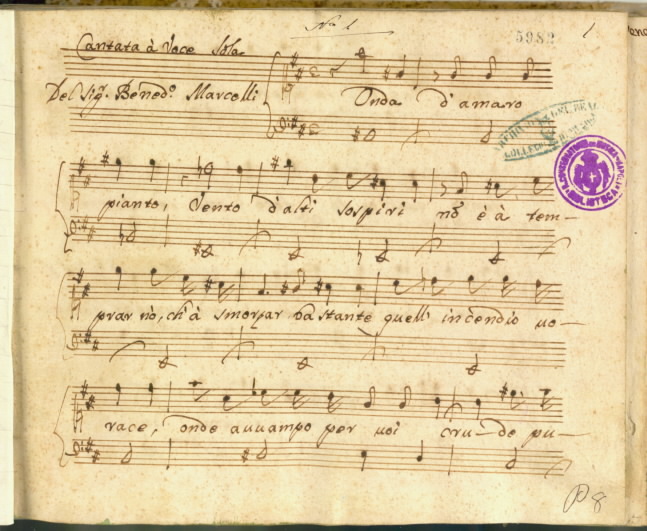 No. 1
5982
1
Cantata à Voce Sola
Del Sig.r Bened.o Marcelli
Onda d'amaro
pianto, Vento d'alti sospiri nõ è à tem-
prar nò, ch'à smorzar bastante quell incendio uo-
race, onde auuampo per uoi cru-de pu-